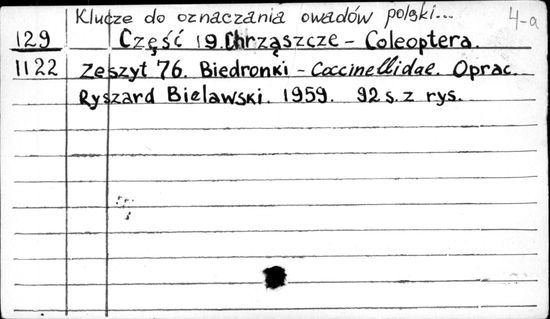 Klucze do oznaczania owadów polski...
4-a
129 Część 19. Chrząszcze - Coleoptera.
1122 Zeszyt 76. Biedronki - Coccinellidae. Oprac.
Ryszard Bielawski. 1959. 92 s. z rys.